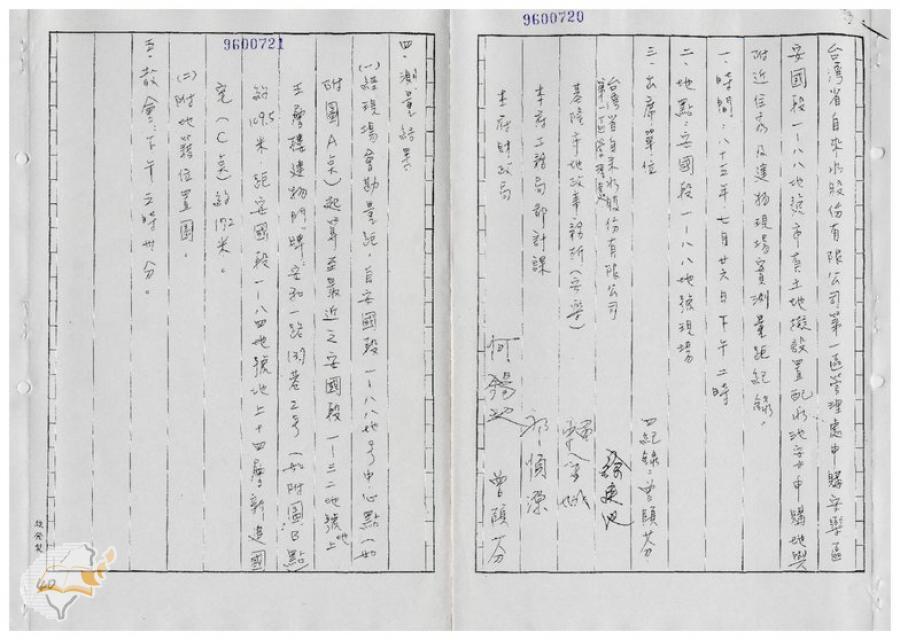 9600720
台灣省自來水股份有限公司第一區管理處申購安樂區
安國段一一八八地號市有土地擬設置配水池安全申購地與
附近住家及建物現場實測量距紀錄。
一、時間：八十三年七月廿六日下午二時
二、地點：安國段一一八八地號現場
三、出席單位
四紀錄：曾頤芬
台灣省自來水股份有限公司
第一區管理處
基隆市地政事務所（安樂）
本府工務局都計課
本府財政局
曾頤芬
9600721
四、測量結果：
(一)經現場會勘量距，自安國段一一八八地号中心點（如
附圖A点）起算至最近之安國段一一三二地號地上
五層樓建物門牌：安和一路137巷2号（如附圖B點）
約109.5米距安國段一一八四地號地上十四層新造國
宅（C点）約172米。
(二)附地籍位置圖。
五、散會：下午三時卅分。
40